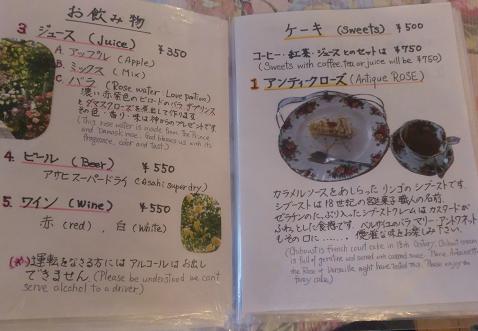 お飲み物
3. ジュース (Juice) ¥350
A. アップル (Apple)
B. ミックス (Mix)
C. バラ (Rose water Love portion)
濃い赤紫色のビロードのバラ ザプリンス
とダマスクローズを煮出して作ります
の色・香り・味は神からのプレゼントです
(This rose water is made from The Prince
and Damask rose. God blesses us with its
fragrance, color and taste.)
4. ビール (Beer) ¥550
アサヒスーパードライ (Asahi super dry)
5. ワイン (Wine) ¥550
赤 (red) , 白 (White)
(※) 運転をなさる方にはアルコールはお出し
できません (Please be understood we can't
serve alcohol to a driver)
ケーキ (Sweets) ¥500
コーヒー・紅茶・ジュースとのセットは ¥750
(Sweets with coffee, tea or juice will be ¥750)
1 アンティクローズ (Antique ROSE)
カラメルソースをあしらった リンゴのシブーストです
シブーストは 18世紀の宮廷菓子職人の名前
ゼラチンのたっぷり入ったシブーストクリームは カスタードが
ふわっとした食感です ベルサイユのバラ マリーアントワネット
もその口に…… 優雅な味をお楽しみ下さい
(Chiboust is French court cake in 18th Century. Chiboust cream
is full of geratine and served with caramel sauce. Marie Antoinette
the Rose of Versaille might have tasted this. Please enjoy the
fancy cake.)